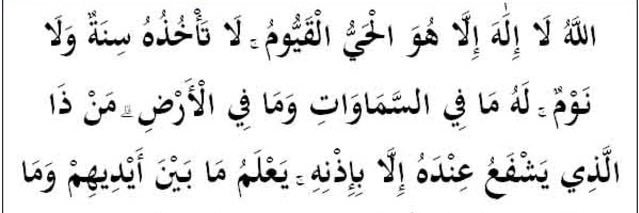 اللَّهُ لَا إِلَٰهَ إِلَّا هُوَ الْحَيُّ الْقَيُّومُ ۚ لَا تَأْخُذُهُ سِنَةٌ وَلَا
نَوْمٌ ۚ لَهُ مَا فِي السَّمَاوَاتِ وَمَا فِي الْأَرْضِ ۗ مَنْ ذَا
الَّذِي يَشْفَعُ عِنْدَهُ إِلَّا بِإِذْنِهِ ۚ يَعْلَمُ مَا بَيْنَ أَيْدِيهِمْ وَمَا